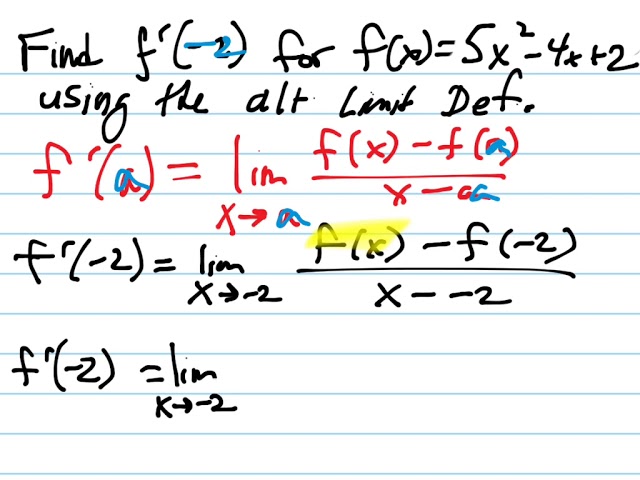 Find f'(-2) for f(x)=5x²-4x+2
using the alt Limit Def.
f'(a) = lim x→a (f(x) - f(a))/(x - a)
f'(-2) = lim x→-2 (f(x) - f(-2))/(x - -2)
f'(-2) = lim x→-2